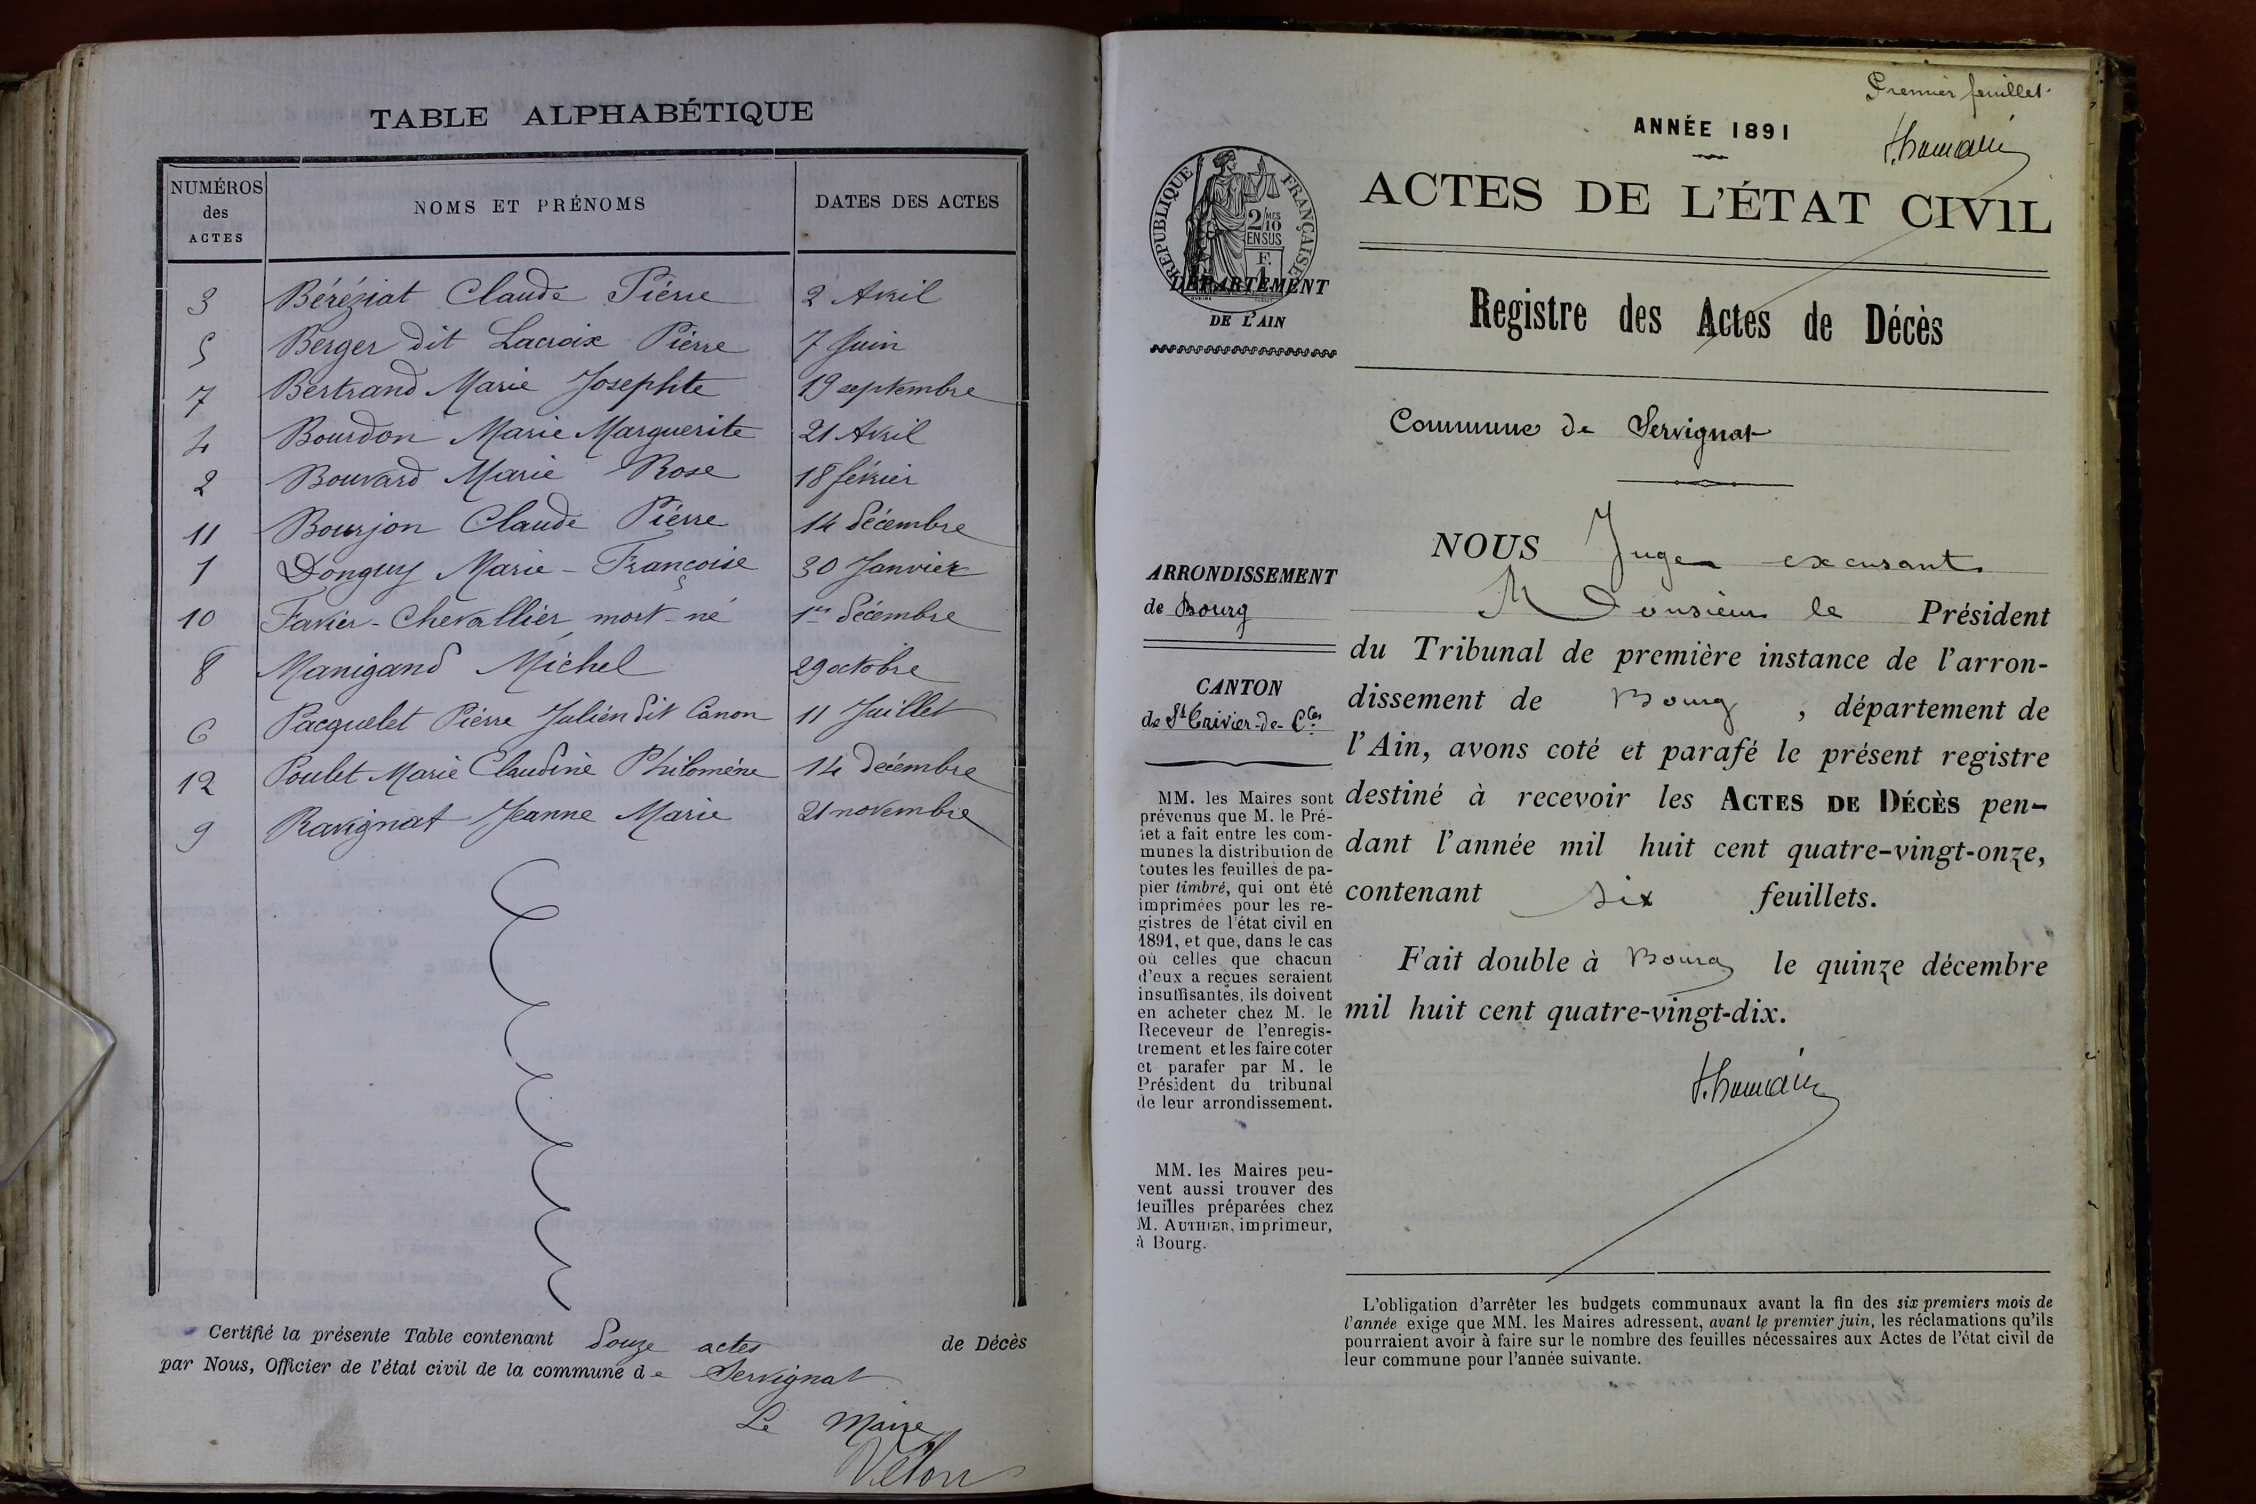 TABLE ALPHABÉTIQUE
NUMÉROS des ACTES NOMS ET PRÉNOMS DATES DES ACTES
3 Béréziat Claude Piérre 2 Avril
5 Berger dit Lacroix Piérre 7 Juin
7 Bertrand Marie Josephte 19 septembre
4 Bourdon Marie Marguerite 21 Avril
2 Bouvard Marie Rose 18 février
11 Bourjon Claude Piérre 14 décembre
1 Donguy Marie-Françoise 30 Janvier
10 Favier-Chevallier mort-né 1er décembre
8 Manigand Michel 29 octobre
6 Pacquelet Piérre Julien dit Canon 11 Juillet
12 Poulet Marie Claudine Philomène 14 décembre
9 Ravignat Jeanne Marie 21 novembre
Certifié la présente Table contenant douze actes de Décès
par Nous, Officier de l'état civil de la commune de Servignat
Le Maire
Premier feuillet.
ANNÉE 1891
ACTES DE L'ÉTAT CIVIL
RÉPUBLIQUE FRANÇAISE
2/10 MES
EN SUS
F.
1
DÉPARTEMENT
DE L'AIN
Registre des Actes de Décès
Commune de Servignat
ARRONDISSEMENT
de Bourg
CANTON
de St Trivier-de-Ctes
MM. les Maires sont
prévenus que M. le Pré-
fet a fait entre les com-
munes la distribution de
toutes les feuilles de pa-
pier timbré, qui ont été
imprimées pour les re-
gistres de l'état civil en
1891, et que, dans le cas
où celles que chacun
d'eux a reçues seraient
insuffisantes, ils doivent
en acheter chez M. le
Receveur de l'enregis-
trement et les faire coter
et parafer par M. le
Président du tribunal
de leur arrondissement.
MM. les Maires peu-
vent aussi trouver des
feuilles préparées chez
M. AUTHIER, imprimeur,
à Bourg.
NOUS Juge excusant
Monsieur le Président
du Tribunal de première instance de l'arron-
dissement de Bourg, département de
l'Ain, avons coté et parafé le présent registre
destiné à recevoir les ACTES DE DÉCÈS pen-
dant l'année mil huit cent quatre-vingt-onze,
contenant six feuillets.
Fait double à Bourg le quinze décembre
mil huit cent quatre-vingt-dix.
L'obligation d'arrêter les budgets communaux avant la fin des six premiers mois de
l'année exige que MM. les Maires adressent, avant le premier juin, les réclamations qu'ils
pourraient avoir à faire sur le nombre des feuilles nécessaires aux Actes de l'état civil de
leur commune pour l'année suivante.